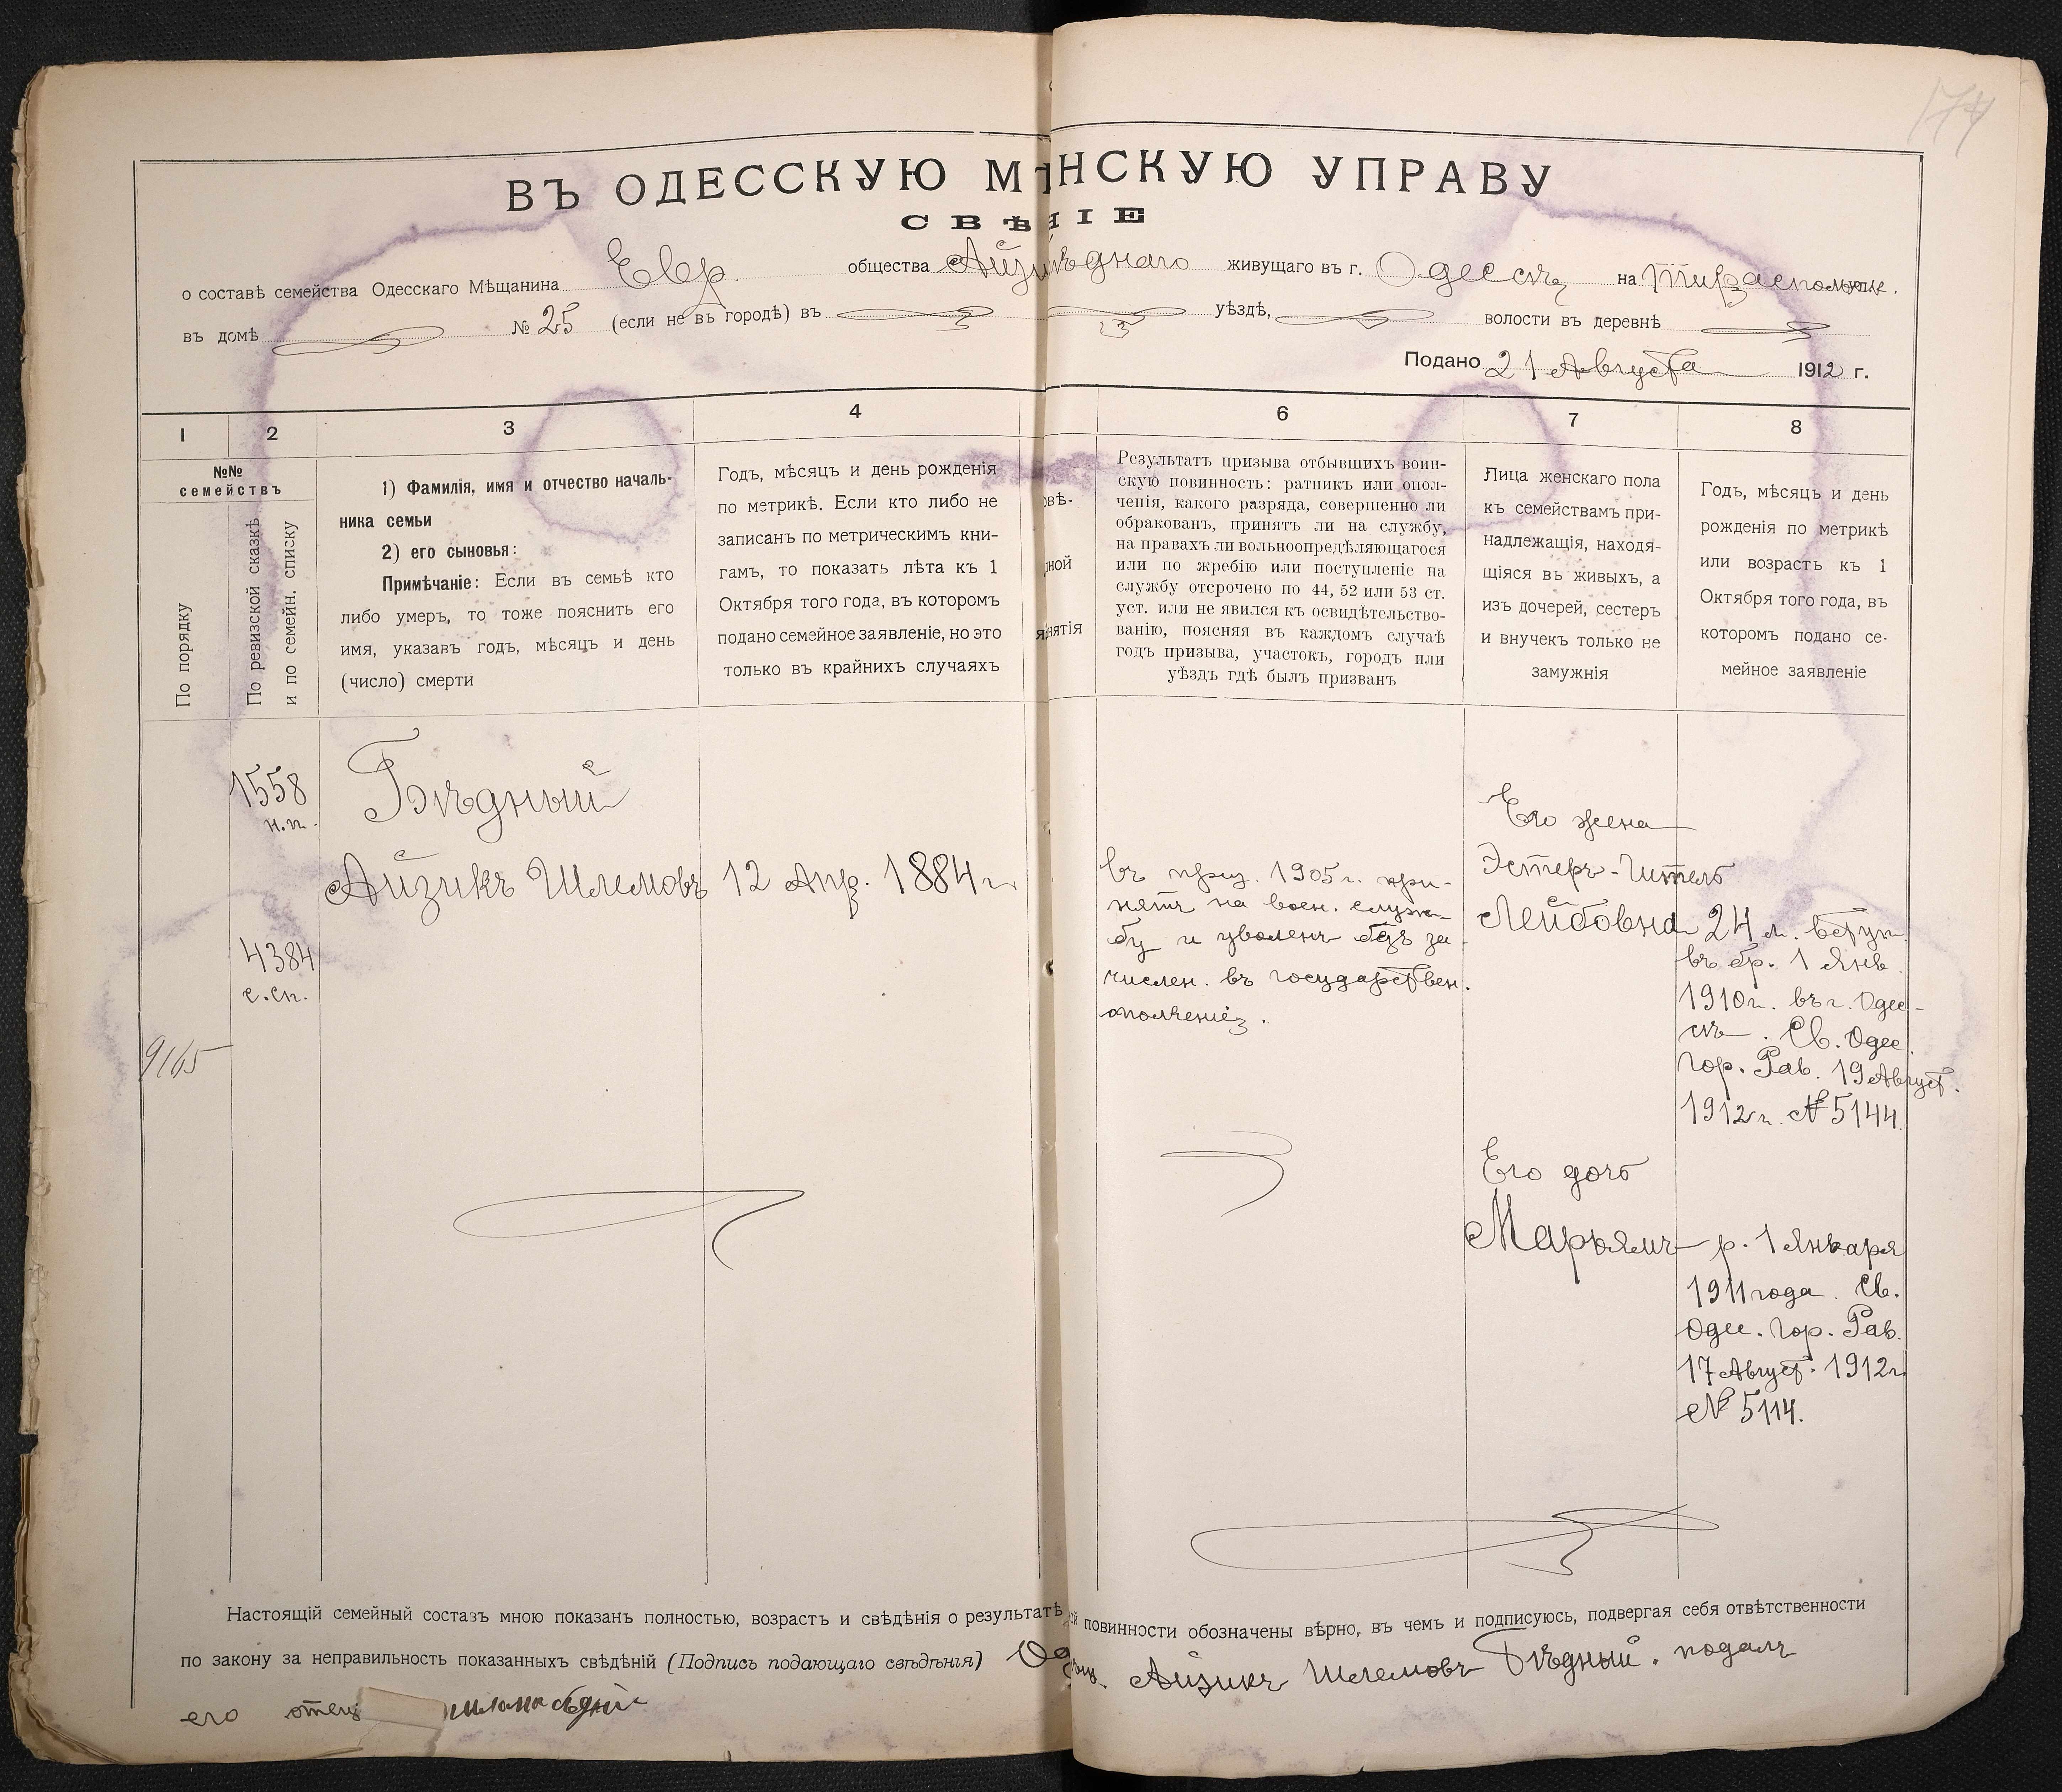 174
ВЪ ОДЕССКУЮ М НСКУЮ УПРАВУ
СВѢ НІЕ
о составѣ семейства Одесскаго Мѣщанина Евр. общества Айзик ѣднаго живущаго въ г. Одессѣ на Тираспольск. ул.
въ домѣ № 25 (если не въ городѣ) въ уѣздѣ, волости въ деревнѣ
Подано 21 Августа 1912 г.
1 2 3 4 6 7 8
№№
семействъ
По порядку
По ревизской сказкѣ
и по семейн. списку
1) Фамилія, имя и отчество началь-
ника семьи
2) его сыновья:
Примѣчаніе: Если въ семьѣ кто
либо умеръ, то тоже пояснить его
имя, указавъ годъ, мѣсяцъ и день
(число) смерти
Годъ, мѣсяцъ и день рожденія
по метрикѣ. Если кто либо не
записанъ по метрическимъ кни-
гамъ, то показать лѣта къ 1
Октября того года, въ которомъ
подано семейное заявленіе, но это
только въ крайнихъ случаяхъ
овѣ-
дной
нятія
Результатъ призыва отбывшихъ воин-
скую повинность: ратникъ или опол-
ченія, какого разряда, совершенно ли
обракованъ, принятъ ли на службу,
на правахъ ли вольноопредѣляющагося
или по жребію или поступленіе на
службу отсрочено по 44, 52 или 53 ст.
уст. или не явился къ освидѣтельство-
ванію, поясняя въ каждомъ случаѣ
годъ призыва, участокъ, городъ или
уѣздъ гдѣ былъ призванъ
Лица женскаго пола
къ семействамъ при-
надлежащія, находя-
щіяся въ живыхъ, а
изъ дочерей, сестеръ
и внучекъ только не
замужнія
Годъ, мѣсяцъ и день
рожденія по метрикѣ
или возрастъ къ 1
Октября того года, въ
которомъ подано се-
мейное заявленіе
9165
1558
н.п.
4384
с.сп.
Бѣдный
Айзикъ Шлемовъ
12 Апр. 1884 г.
въ приз. 1905 г. при-
нятъ на воен. служ-
бу и уволенъ бдз за
числен. въ государствен.
ополченіе.
Его жена
Эстеръ-Гитель
Лейбовна
24 л. вступ.
въ бр. 1 Янв.
1910 г. въ г. Одес-
сѣ. Св. Одес.
Гор. Рав. 19 Август.
1912 г. № 5144.
Его дочь
Марьямъ
р. 1 Января
1911 года. Св.
Одес. Гор. Рав.
17 Август. 1912 г.
№ 5114.
Настоящій семейный составъ мною показанъ полностью, возрастъ и свѣдѣнія о результатѣ ой повинности обозначены вѣрно, въ чемъ и подписуюсь, подвергая себя отвѣтственности
по закону за неправильность показанныхъ свѣдѣній (Подпись подающаго свѣдѣнія) Од Айзикъ Шлемовъ Бѣдный. подалъ
его отец